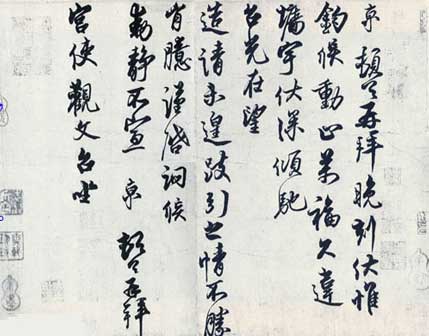 京頓首再拜晚刻伏惟
鈞候動止萬福久違
墻宇伏深傾馳
台光在望
造請未遑跂引之情不勝
胷臆謹啓詞候
動靜不宣京頓首再拜
宮使觀文台坐